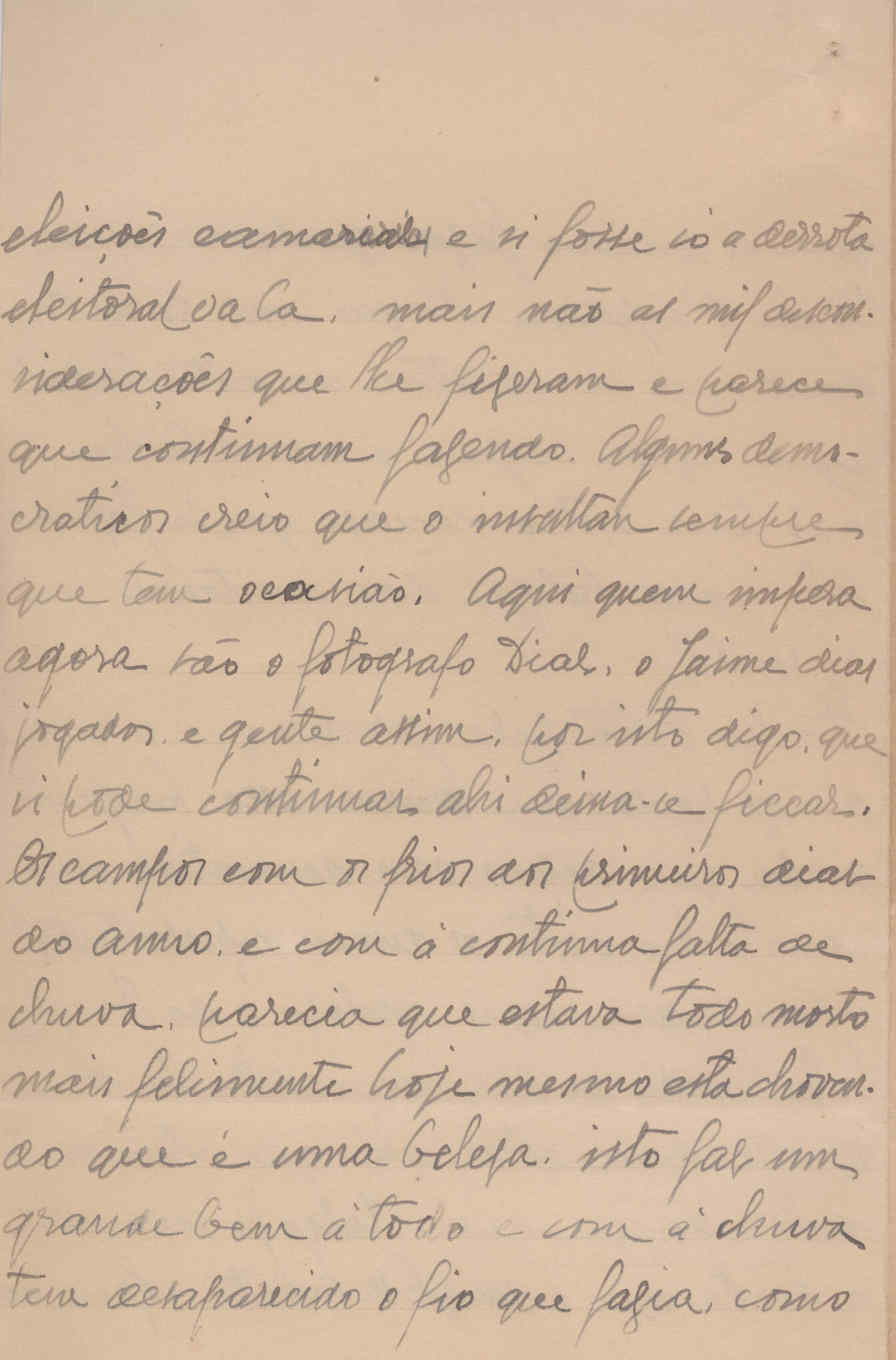 eleicoês camariais e si fosse só a derrota
eleitoral va la. mais não as mil descon-
sideracoês que lhe figeram e parece
que continuam fagendo. Alguns demo-
craticos creio que o insultan sempre
que tem ocasião. Aqui quem impera
agora são o fotografo Dias, o Jaime dias
jogador, e gente assim, por isto digo, que
si pode continuar ahi deixa-se ficcar.
Os campos com os frios dos primeiros dias
do anno, e com á continua falta de
chuva, parecia que estava todo morto
mais felimente hoje mesmo está choven-
do que é uma belega. isto faz um
grande bem á todo e com á chuva
tem desaparecido o fio que fagia, como